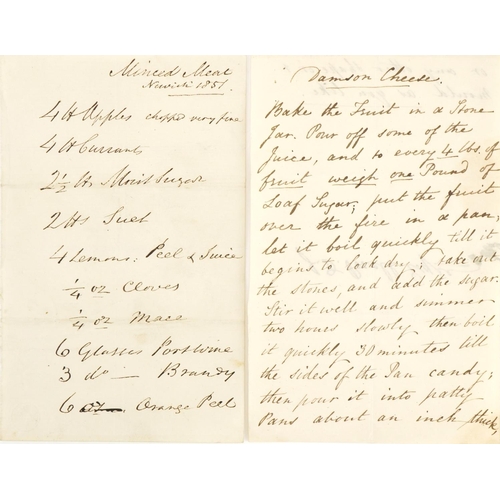 Minced Meat
1851
4 lb Apples chopped very fine
4 lb Currants
2 1/2 lbs Moist Sugar
2 lbs Suet
4 Lemons: Peel & Juice
1/4 oz Cloves
1/4 oz Mace
6 Glasses Port Wine
3 do — Brandy
6 oz Orange Peel
Damson Cheese.
Bake the Fruit in a Stone
Jar. Pour off some of the
Juice, and to every 4 lbs. of
fruit weigh one Pound of
Loaf Sugar; put the fruit
over the fire in a pan;
let it boil quickly till it
begins to look dry; take out
the stones, and add the sugar.
Stir it well and simmer
two hours slowly, then boil
it quickly 30 minutes till
the sides of the Pan candy;
then pour it into patty
Pans about an inch thick,